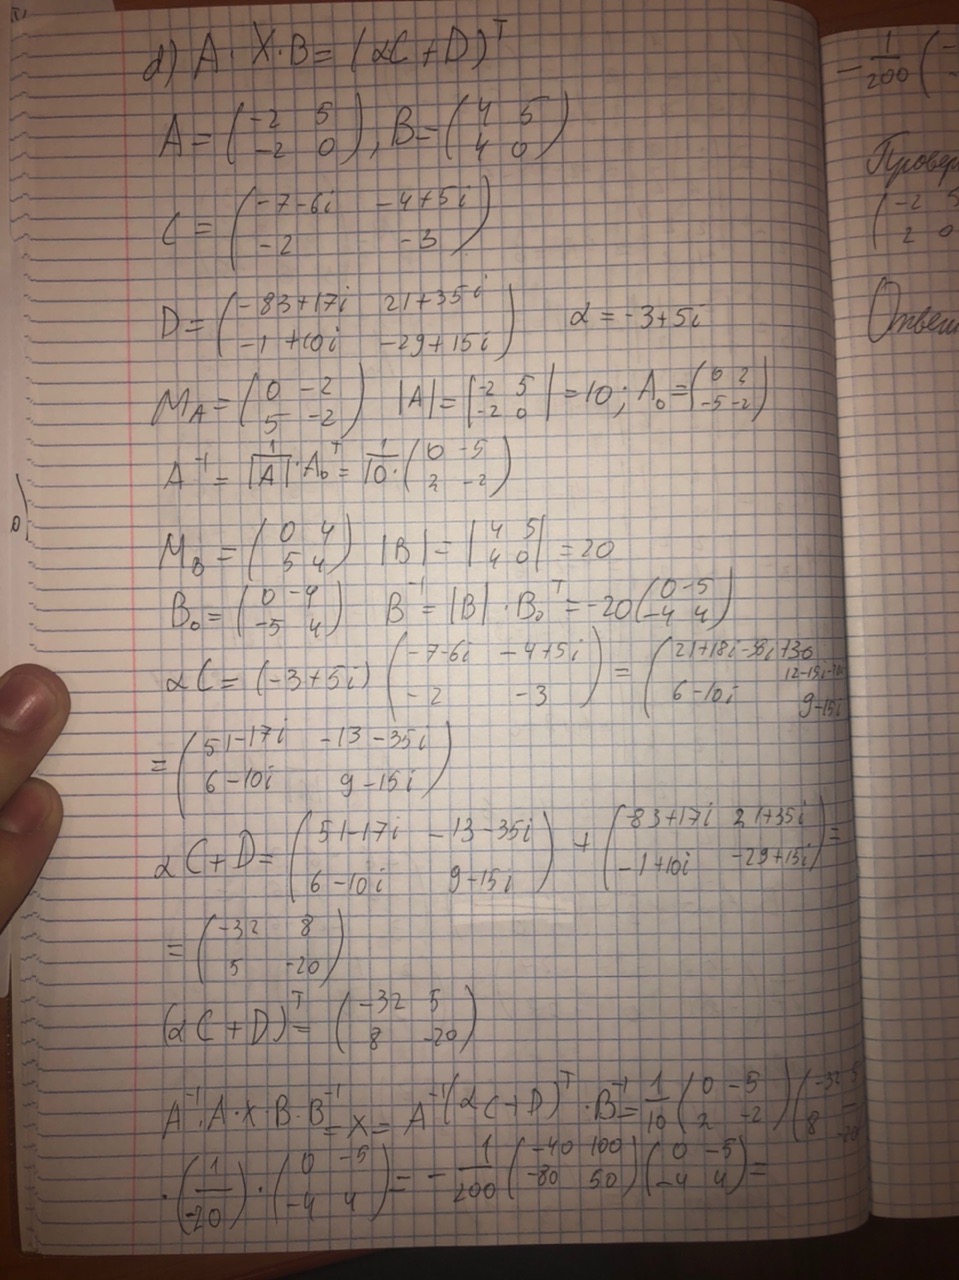 d) A · X · B = (αC + D)ᵀ
A = (-2 5; -2 0), B = (4 5; 4 0)
C = (-7-6i -4+5i; -2 -3)
D = (-83+17i 21+35i; -1+10i -29+15i) α = -3+5i
M_A = (0 -2; 5 -2) |A| = |-2 5; -2 0| = 10; A₀ = (0 2; -5 -2)
A⁻¹ = 1/|A| · A₀ᵀ = 1/10 · (0 -5; 2 -2)
M_B = (0 4; 5 4) |B| = |4 5; 4 0| = 20
B₀ = (0 -4; -5 4) B⁻¹ = |B| · B₀ᵀ = -20 (0 -5; -4 4)
αC = (-3+5i) (-7-6i -4+5i; -2 -3) = (21+18i-35i+30 12-15i; 6-10i 9-15i
= (51-17i -13-35i; 6-10i 9-15i)
αC + D = (51-17i -13-35i; 6-10i 9-15i) + (-83+17i 21+35i; -1+10i -29+15i) =
= (-32 8; 5 -20)
(αC + D)ᵀ = (-32 5; 8 -20)
A⁻¹ · A · X · B · B⁻¹ = X = A⁻¹ (αC + D)ᵀ · B⁻¹ = 1/10 (0 -5; 2 -2) (-32 5; 8 -20
· (1/-20) · (0 -5; -4 4) = - 1/200 (-40 100; -80 50) (0 -5; -4 4) =
- 1/200 (
Провер
(-2 5; 2 0
Ответ